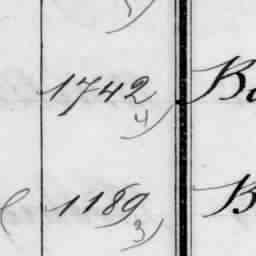 1742 Bo
4)
1189 B
3)